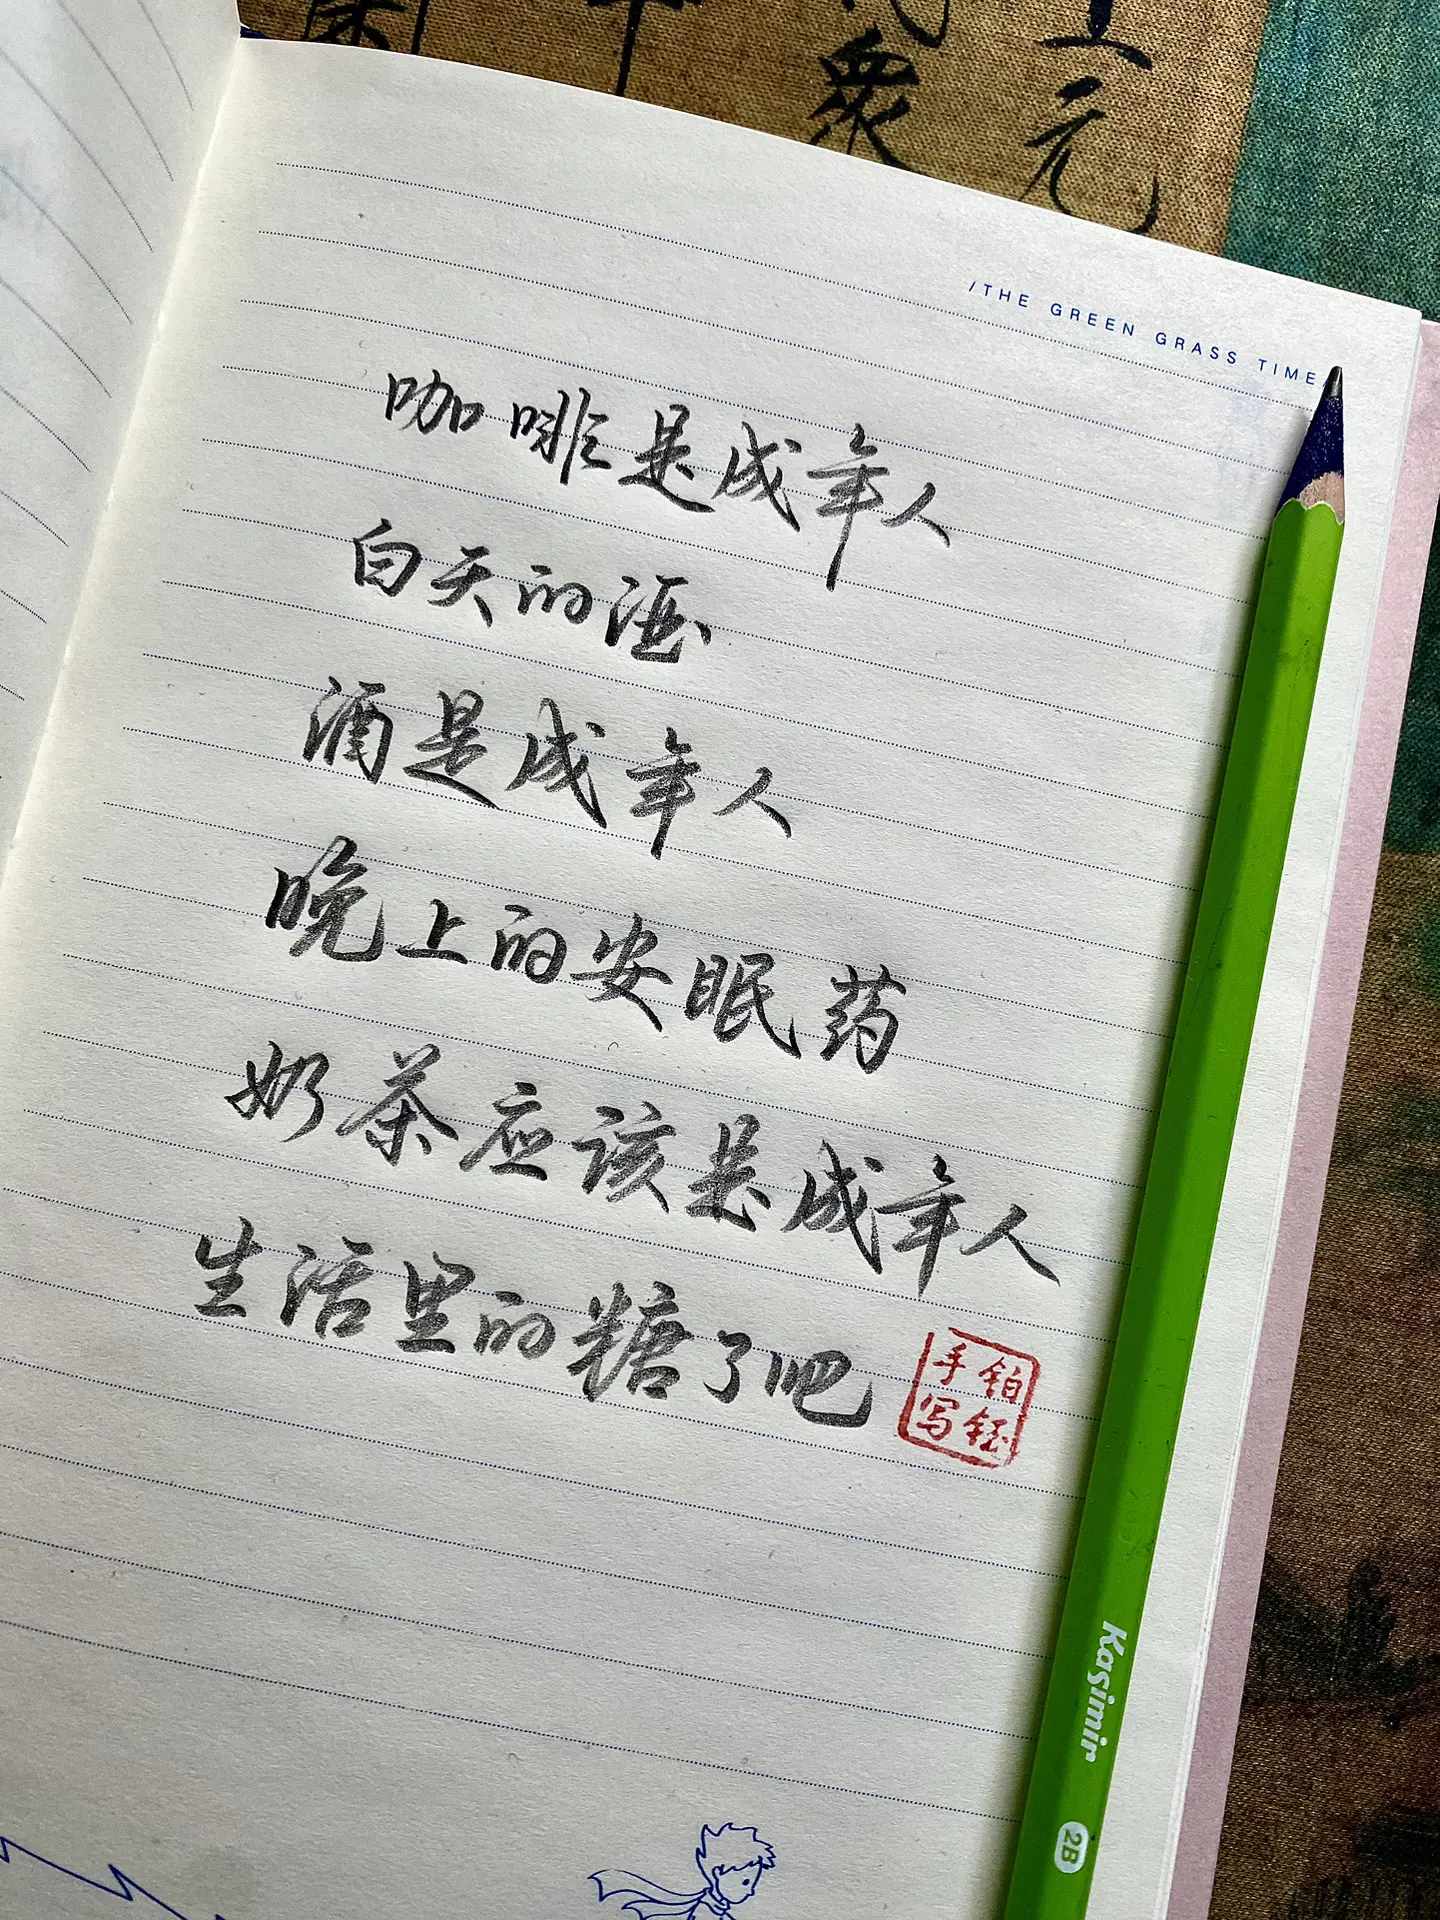 衆
元
/THE GREEN GRASS TIME
咖啡是成年人
白天的酒
酒是成年人
晚上的安眠药
奶茶应该是成年人
生活里的糖了吧
铂钰
手写
Kasimir
2B